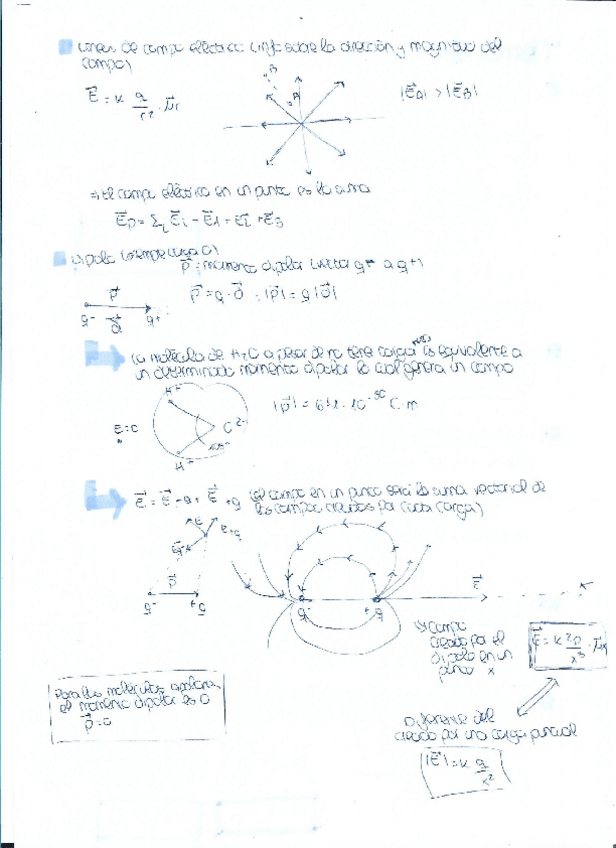 Líneas de campo eléctrico (info sobre la dirección y magnitud del
campo)
B
A
E⃗ = K q/r² · μ⃗r
|E⃗A| > |E⃗B|
⇒ El campo eléctrico en un punto es la suma
E⃗p = Σi E⃗i = E⃗1 + E⃗2 + E⃗3
Dipolo (siempre carga 0)
P⃗ = momento dipolar (vector q- a q+)
P⃗
P⃗ = q · d⃗ ; |P⃗| = q |d⃗|
q- d⃗ q+
La molécula de H2O a pesar de no tener carga neta es equivalente a
un determinado momento dipolar lo cual genera un campo
H+
|P⃗| = 6'1 · 10-30 C · m
E=0
O2-
H+
E⃗ = E⃗-q + E⃗+q (el campo en un punto será la suma vectorial de
los campos creados por cada carga)
E
E+q
E-q
P⃗
q- +q
q- +q
E⃗
x
Campo
creado por el
dipolo en un
punto x
E⃗ = K 2p/x³ · μ⃗x
Para las moléculas apolares
el momento dipolar es 0
P⃗ = 0
Diferente del
creado por una carga puntual
|E⃗| = K q/x²